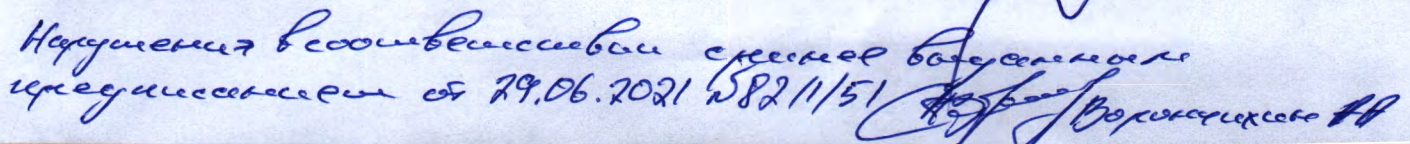 Нарушения в соответствии с ранее выданным
предписанием от 29.06.2021 №82/1/51 Воронцихин АА